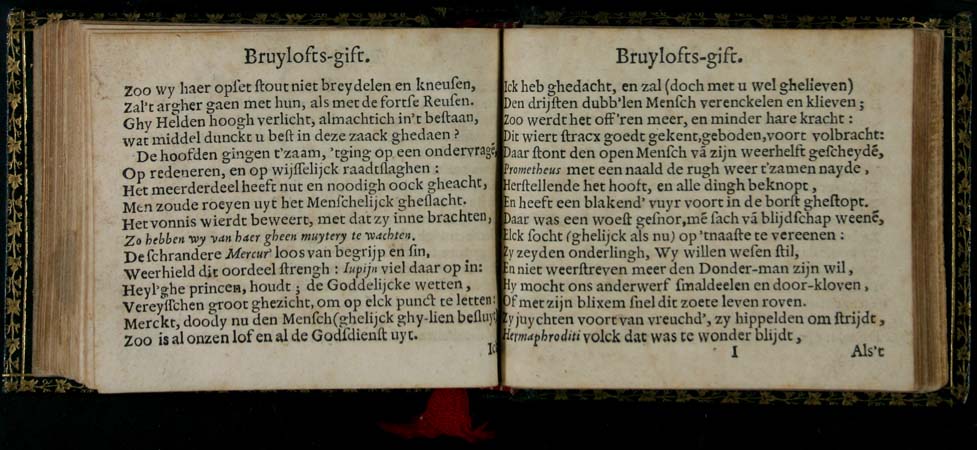 Bruylofts-gift.
Zoo wy haer opſet ſtout niet breydelen en kneuſen,
Zal't argher gaen met hun, als met de fortſe Reuſen.
Ghy Helden hoogh verlicht, almachtich in't beſtaan,
wat middel dunckt u beſt in deze zaack ghedaen?
De hoofden gingen t'zaam, 'tging op een ondervragē,
Op redeneren, en op wijſſelijck raadtſlaghen:
Het meerderdeel heeft nut en noodigh oock gheacht,
Men zoude roeyen uyt het Menſchelijck gheſlacht.
Het vonnis wierdt beweert, met dat zy inne brachten,
Zo hebben wy van haer gheen muytery te wachten.
De ſchrandere Mercur' loos van begrijp en ſin,
Weerhield dit oordeel ſtrengh: Iupijn viel daar op in:
Heyl'ghe princen, houdt; de Goddelijcke wetten,
Vereyſſchen groot ghezicht, om op elck punct te letten:
Merckt, doody nu den Menſch (ghelijck ghy-lien beſluyt
Zoo is al onzen lof en al de Godſdienſt uyt.
Ic
Bruylofts-gift.
Ick heb ghedacht, en zal (doch met u wel ghelieven)
Den drijſten dubb'len Menſch verenckelen en klieven;
Zoo werdt het off'ren meer, en minder hare kracht:
Dit wiert ſtracx goedt gekent, geboden, voort volbracht:
Daar ſtont den open Menſch vā zijn weerhelft geſcheydē,
Prometheus met een naald de rugh weer t'zamen nayde,
Herſtellende het hooft, en alle dingh beknopt,
En heeft een blakend' vuyr voort in de borſt gheſtopt.
Daar was een woeſt geſnor, mē ſach vā blijdſchap weenē,
Elck ſocht (ghelijck als nu) op 'tnaaſte te vereenen:
Zy zeyden onderlingh, Wy willen weſen ſtil,
En niet weerſtreven meer den Donder-man zijn wil,
Hy mocht ons anderwerf ſmaldeelen en door-kloven,
Of met zijn blixem ſnel dit zoete leven roven.
Zy juychten voort van vreuchd', zy hippelden om ſtrijdt,
Hermaphroditi volck dat was te wonder blijdt,
I Als't